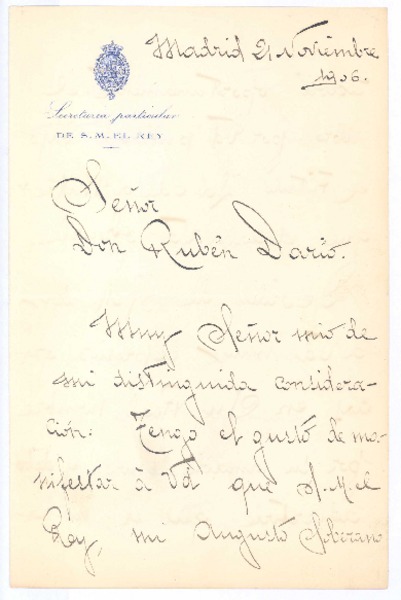 Madrid 21 Noviembre
1906.
Secretaria particular
DE S. M. EL REY
Señor
Don Rubén Darío.
Muy Señor mío de
mi distinguida considera-
ción: Tengo el gusto de ma-
nifestar á Vd que S. M. el
Rey, mi Augusto Soberano